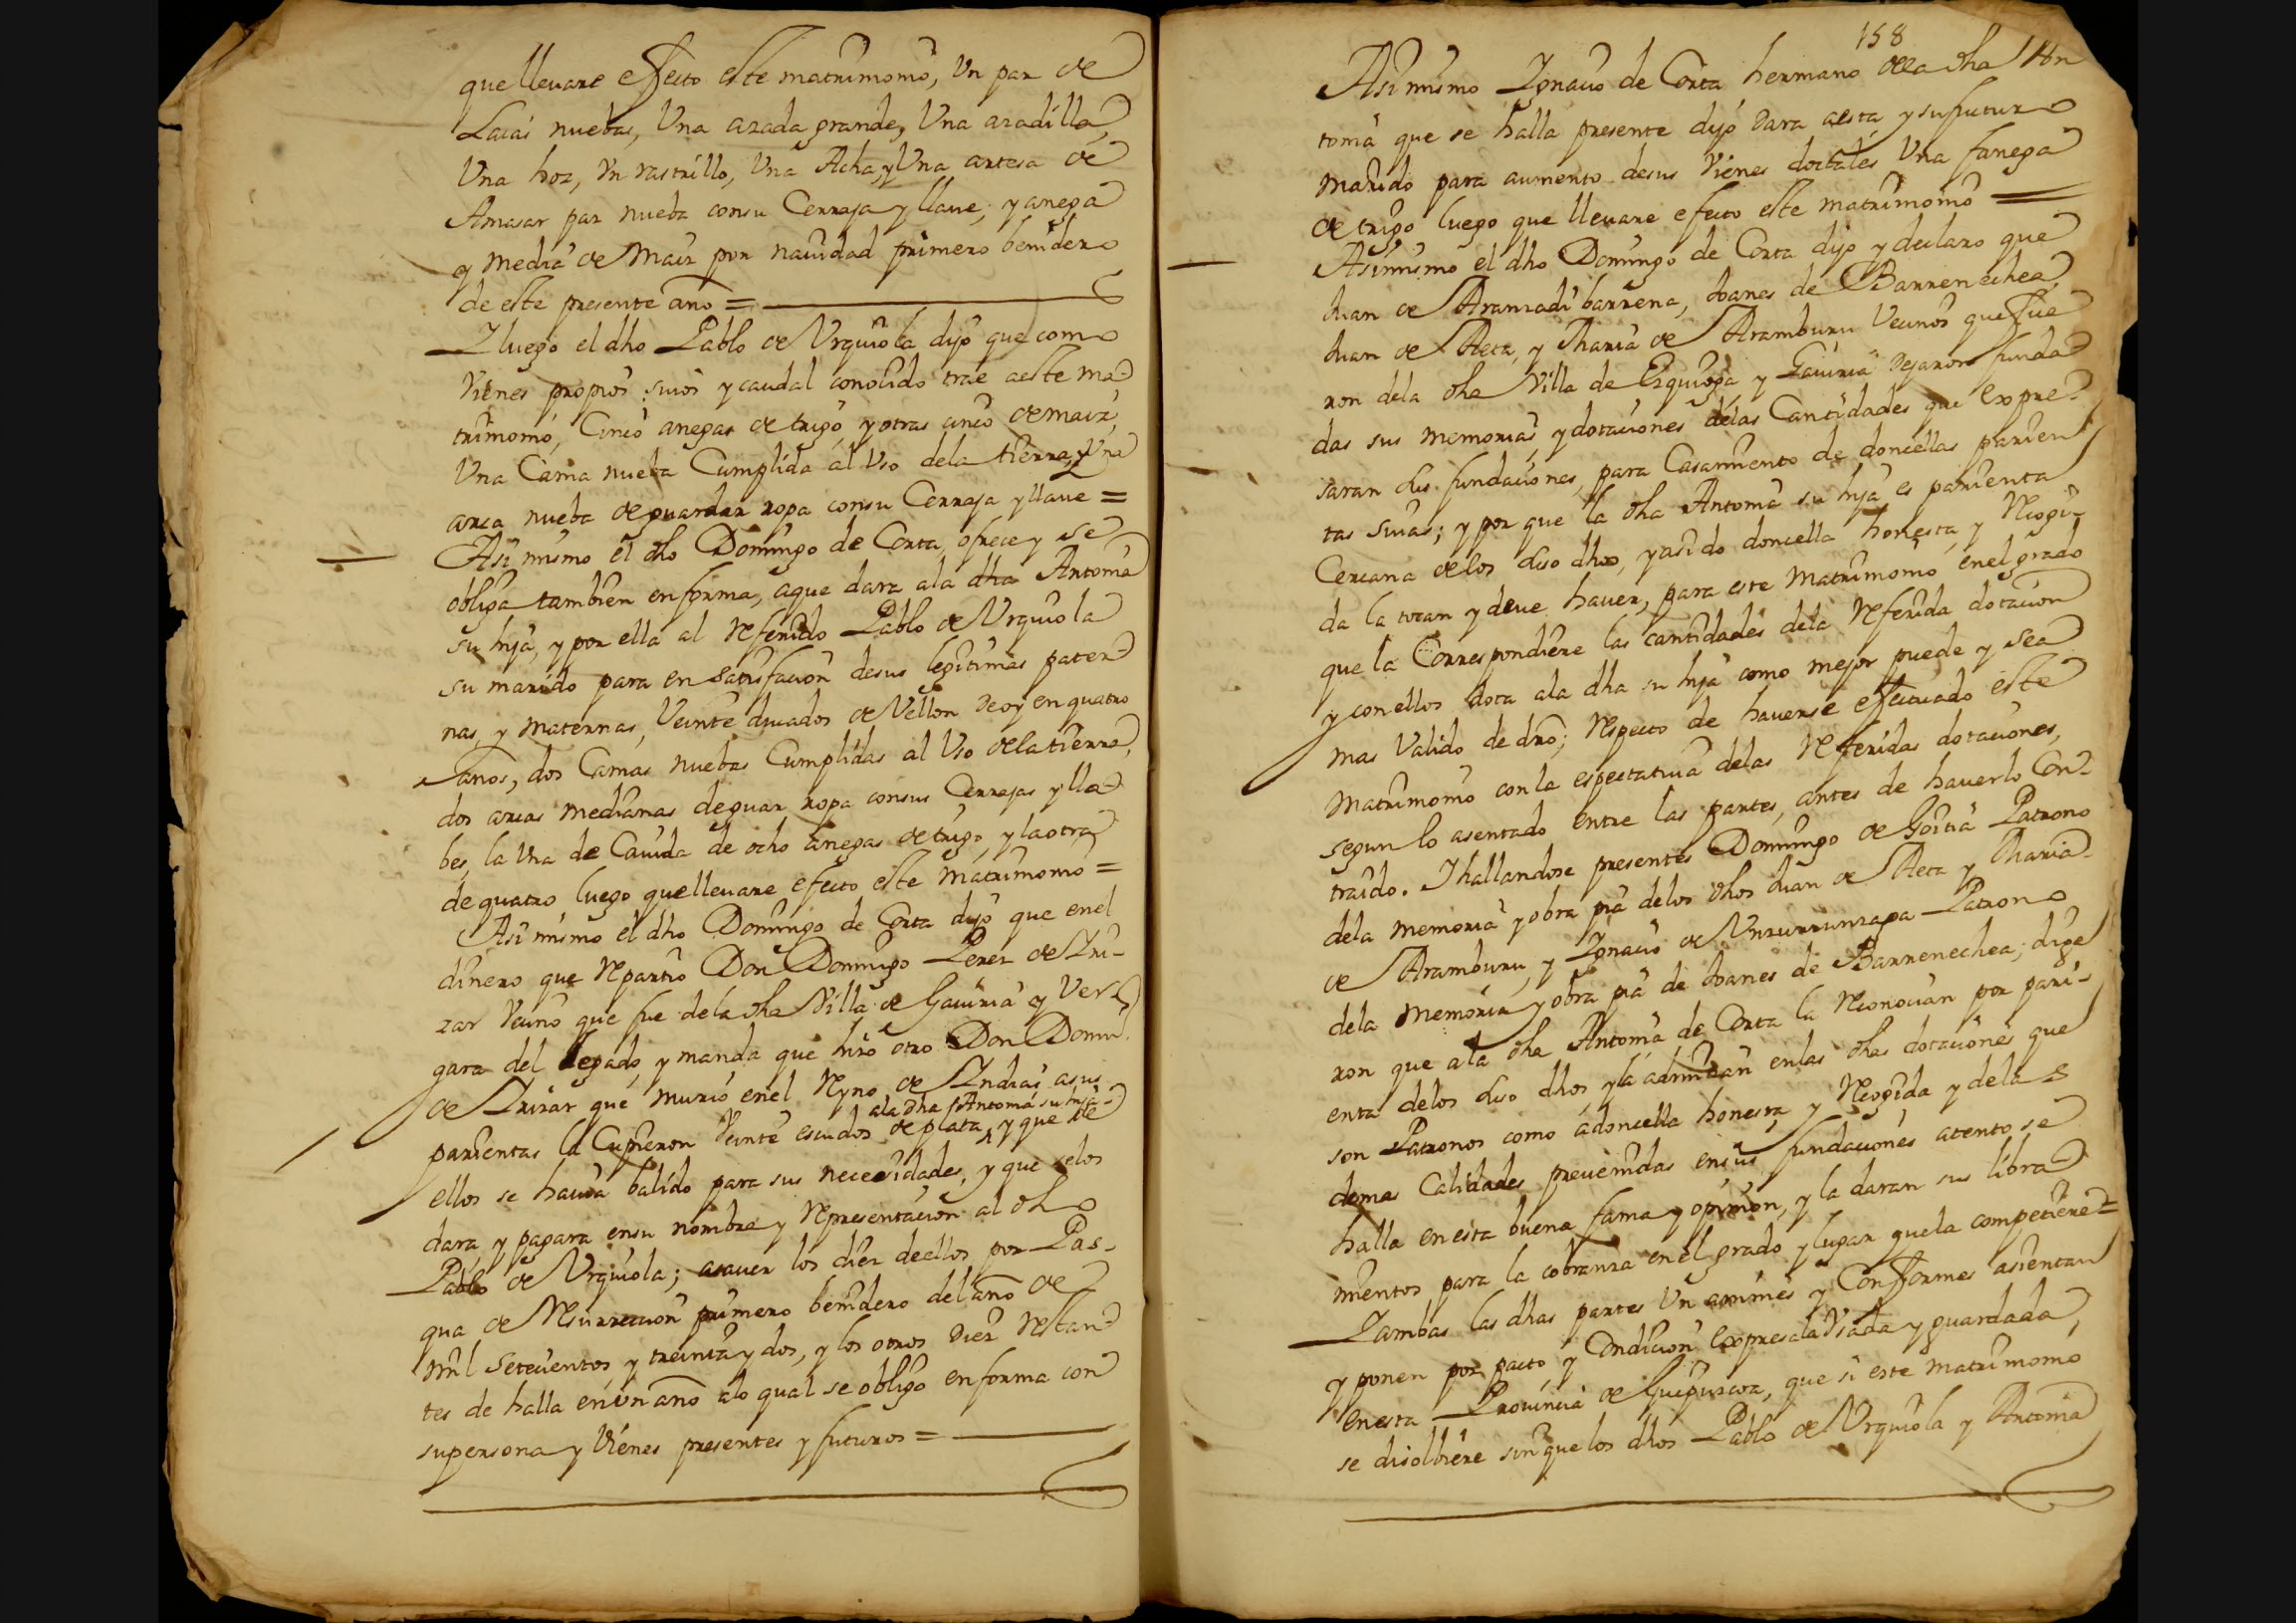 que llevare effecto este matrimonio, Un par de
Laias nuebas, Una azada grande, Una azadilla,
Una hoz, Un rastrillo, Una Acha, y Una artesa de
Amasar pan nueba con su Cerraja y llave; y anega
y media de Maiz por navidad primero benidero
de este presente año =
I luego el dho Pablo de Urquiola dijo que como
Vienes propios suios y caudal conocido trae a este ma
trimonio, Cinco anegas de trigo y otras cinco de maiz,
Una Cama nueba Cumplida al Uso de la tierra, y Una
arca nueba de guardar ropa con su Cerraja y llave =
Asi mismo el dho Domingo de Corta, ofrece y se
obliga tambien en forma, a que dara a la dha Antonia
su hija, y por ella al Referido Pablo de Urquiola
su marido para en Satisfacion de sus legitimas pater
nas, y maternas, Veinte ducados de Vellon de oy en quatro
años, dos Camas nuebas Cumplidas al Uso de la tierra,
dos arcas medianas de guar ropa con sus Cerrajas y lla
bes, la Una de Cavida de ocho anegas de trigo, y la otra
de quatro luego que llevare efecto este matrimonio =
Asi mismo el dho Domingo de Corta dijo que en el
dinero que Repartio Don Domingo Perez de Iri-
zar Vecino que fue de la dha Villa de Gaviria y Ver
gara del legado, y manda que hizo otro Don Domin
de Irizar que murio en el Reyno de Indias a sus
a la dha Antonia su hija
parientas la Cupieron Veinte escudos de plata, y que de
ellos se havia balido para sus necesidades, y que se los
dara, y pagara en su nombre y Representacion al dho
Pablo de Urquiola; a saver los diez de ellos por Pas-
qua de Resurreccion primero benidero del año de
mil Setecientos y treinta y dos, y los otros diez restan
tes de halla en un año a lo qual se obligo en forma con
su persona y Vienes presentes y futuros =
158
Asi mismo Ignacio de Corta hermano de la dha An
tonia que se halla presente dijo dara a esta y su futuro
marido para aumento de sus Vienes dotales Una fanega
de trigo luego que llevare efecto este matrimonio =
Asimismo el dho Domingo de Corta dijo y declaro que
Juan de Aranzadi barrena, Ibanes de Barrenechea,
Juan de Aeta, y Maria de Aramburu Vecinos que fue
ron de la dha Villa de Ezquioga y Gaviria dejaron funda
das sus memorias, y dotaciones de las Cantidades que Expre
saran sus fundaciones, para Casamiento de doncellas parien
tas suias; y por que la dha Antonia su hija es parienta
Cercana de los suso dhos, y a sido doncella honesta, y Recogi-
da la tocan y deve haver, para este Matrimonio en el grado
que la Correspondiere las cantidades de la Referida dotacion
y con ellos dota a la dha su hija como mejor puede y sea
mas Valido de dro; Respecto de haverse efectuado este
Matrimonio con la espectativa de las Referidas dotaciones,
segun lo asentado entre las partes, antes de haverlo Con-
traido. I hallandose presentes Domingo de Goitia Patrono
de la memoria y obra pia de los dhos Juan de Aeta y Maria
de Aramburu, y Ignacio de Unzurrunzaga Patrono
de la memoria y obra pia de Ibanes de Barrenechea, dije
ron que a la dha Antonia de Corta la Reconocian por pari-
enta de los suso dhos, y la admitian en las dhas dotaciones que
son Patronos como a doncella honesta, y Recogida y de las
demas Calidades prevenidas en sus fundaciones atento se
halla en esta buena fama y opinion, y la daran sus libra
mientos para la cobranza en el grado y lugar que la competiere =
I ambas las dhas partes Un animes y Conformes asientan
y ponen por pacto, y Condicion Expresa la Usada y guardada,
en esta Provincia de Guipuzcoa, que si este matrimonio
se disolbiere sin que los dhos Pablo de Urquiola y Antonia